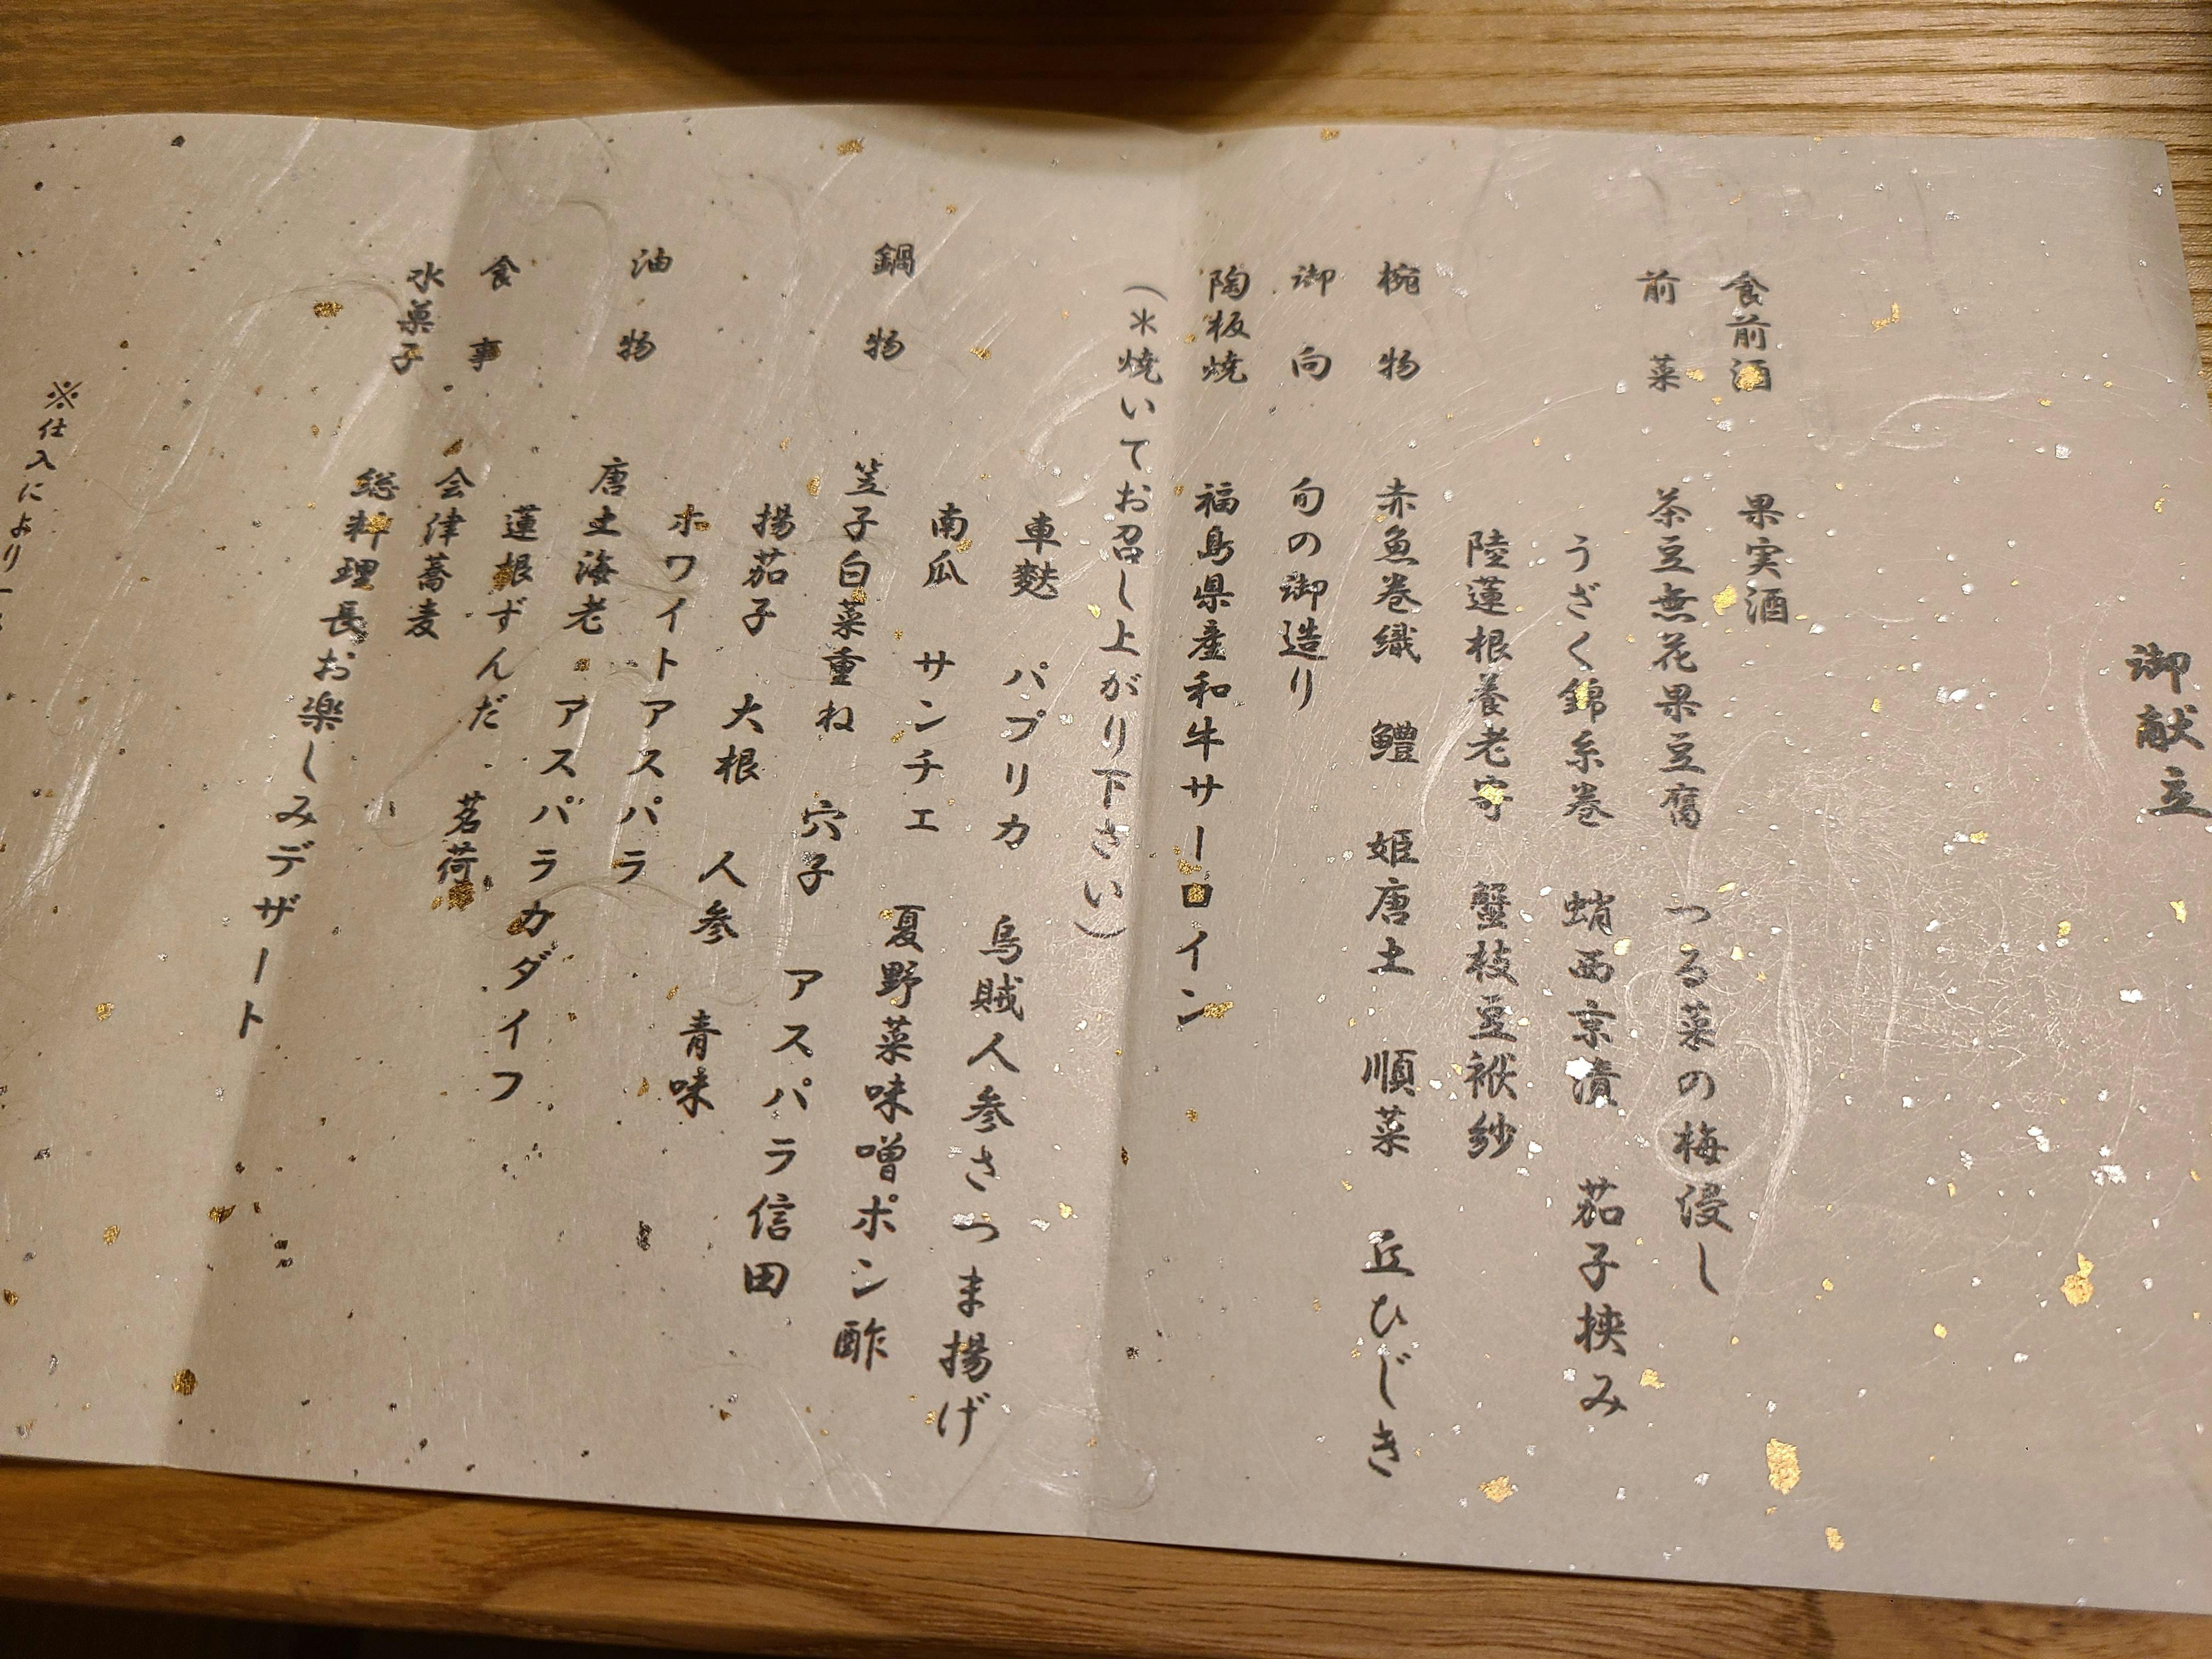 御献立
食前酒　果実酒
前菜　茶豆無花果豆腐　つる菜の梅浸し
うざく錦糸巻　蛸西京漬　茄子挟み
陸蓮根養老寄　蟹枝豆袱紗
椀物　赤魚巻織　鱧　姫唐土　順菜　丘ひじき
御向　旬の御造り
陶板焼　福島県産和牛サーロイン
（＊焼いてお召し上がり下さい）
車麩　パプリカ　烏賊人参さつま揚げ
南瓜　サンチェ　夏野菜味噌ポン酢
鍋物　笠子白菜重ね　穴子　アスパラ信田
揚茄子　大根　人参　青味
ホワイトアスパラ
油物　唐土海老　アスパラカダイフ
蓮根ずんだ　茗荷
食事　会津蕎麦
水菓子　総料理長お楽しみデザート
※仕入により